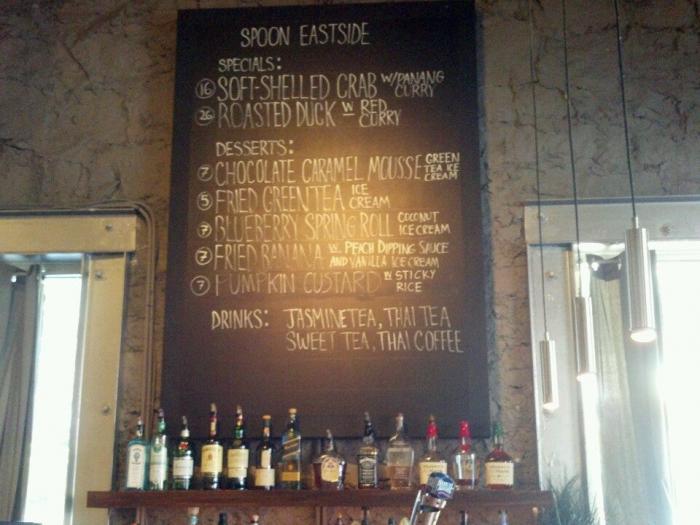 SPOON EASTSIDE
SPECIALS:
16 SOFT-SHELLED CRAB W/ PANANG CURRY
26 ROASTED DUCK W RED CURRY
DESSERTS:
7 CHOCOLATE CARAMEL MOUSSE GREEN TEA ICE CREAM
5 FRIED GREEN TEA ICE CREAM
7 BLUEBERRY SPRING ROLL COCONUT ICE CREAM
7 FRIED BANANA W. PEACH DIPPING SAUCE AND VANILLA ICE CREAM
7 PUMPKIN CUSTARD W STICKY RICE
DRINKS: JASMINE TEA, THAI TEA
SWEET TEA, THAI COFFEE